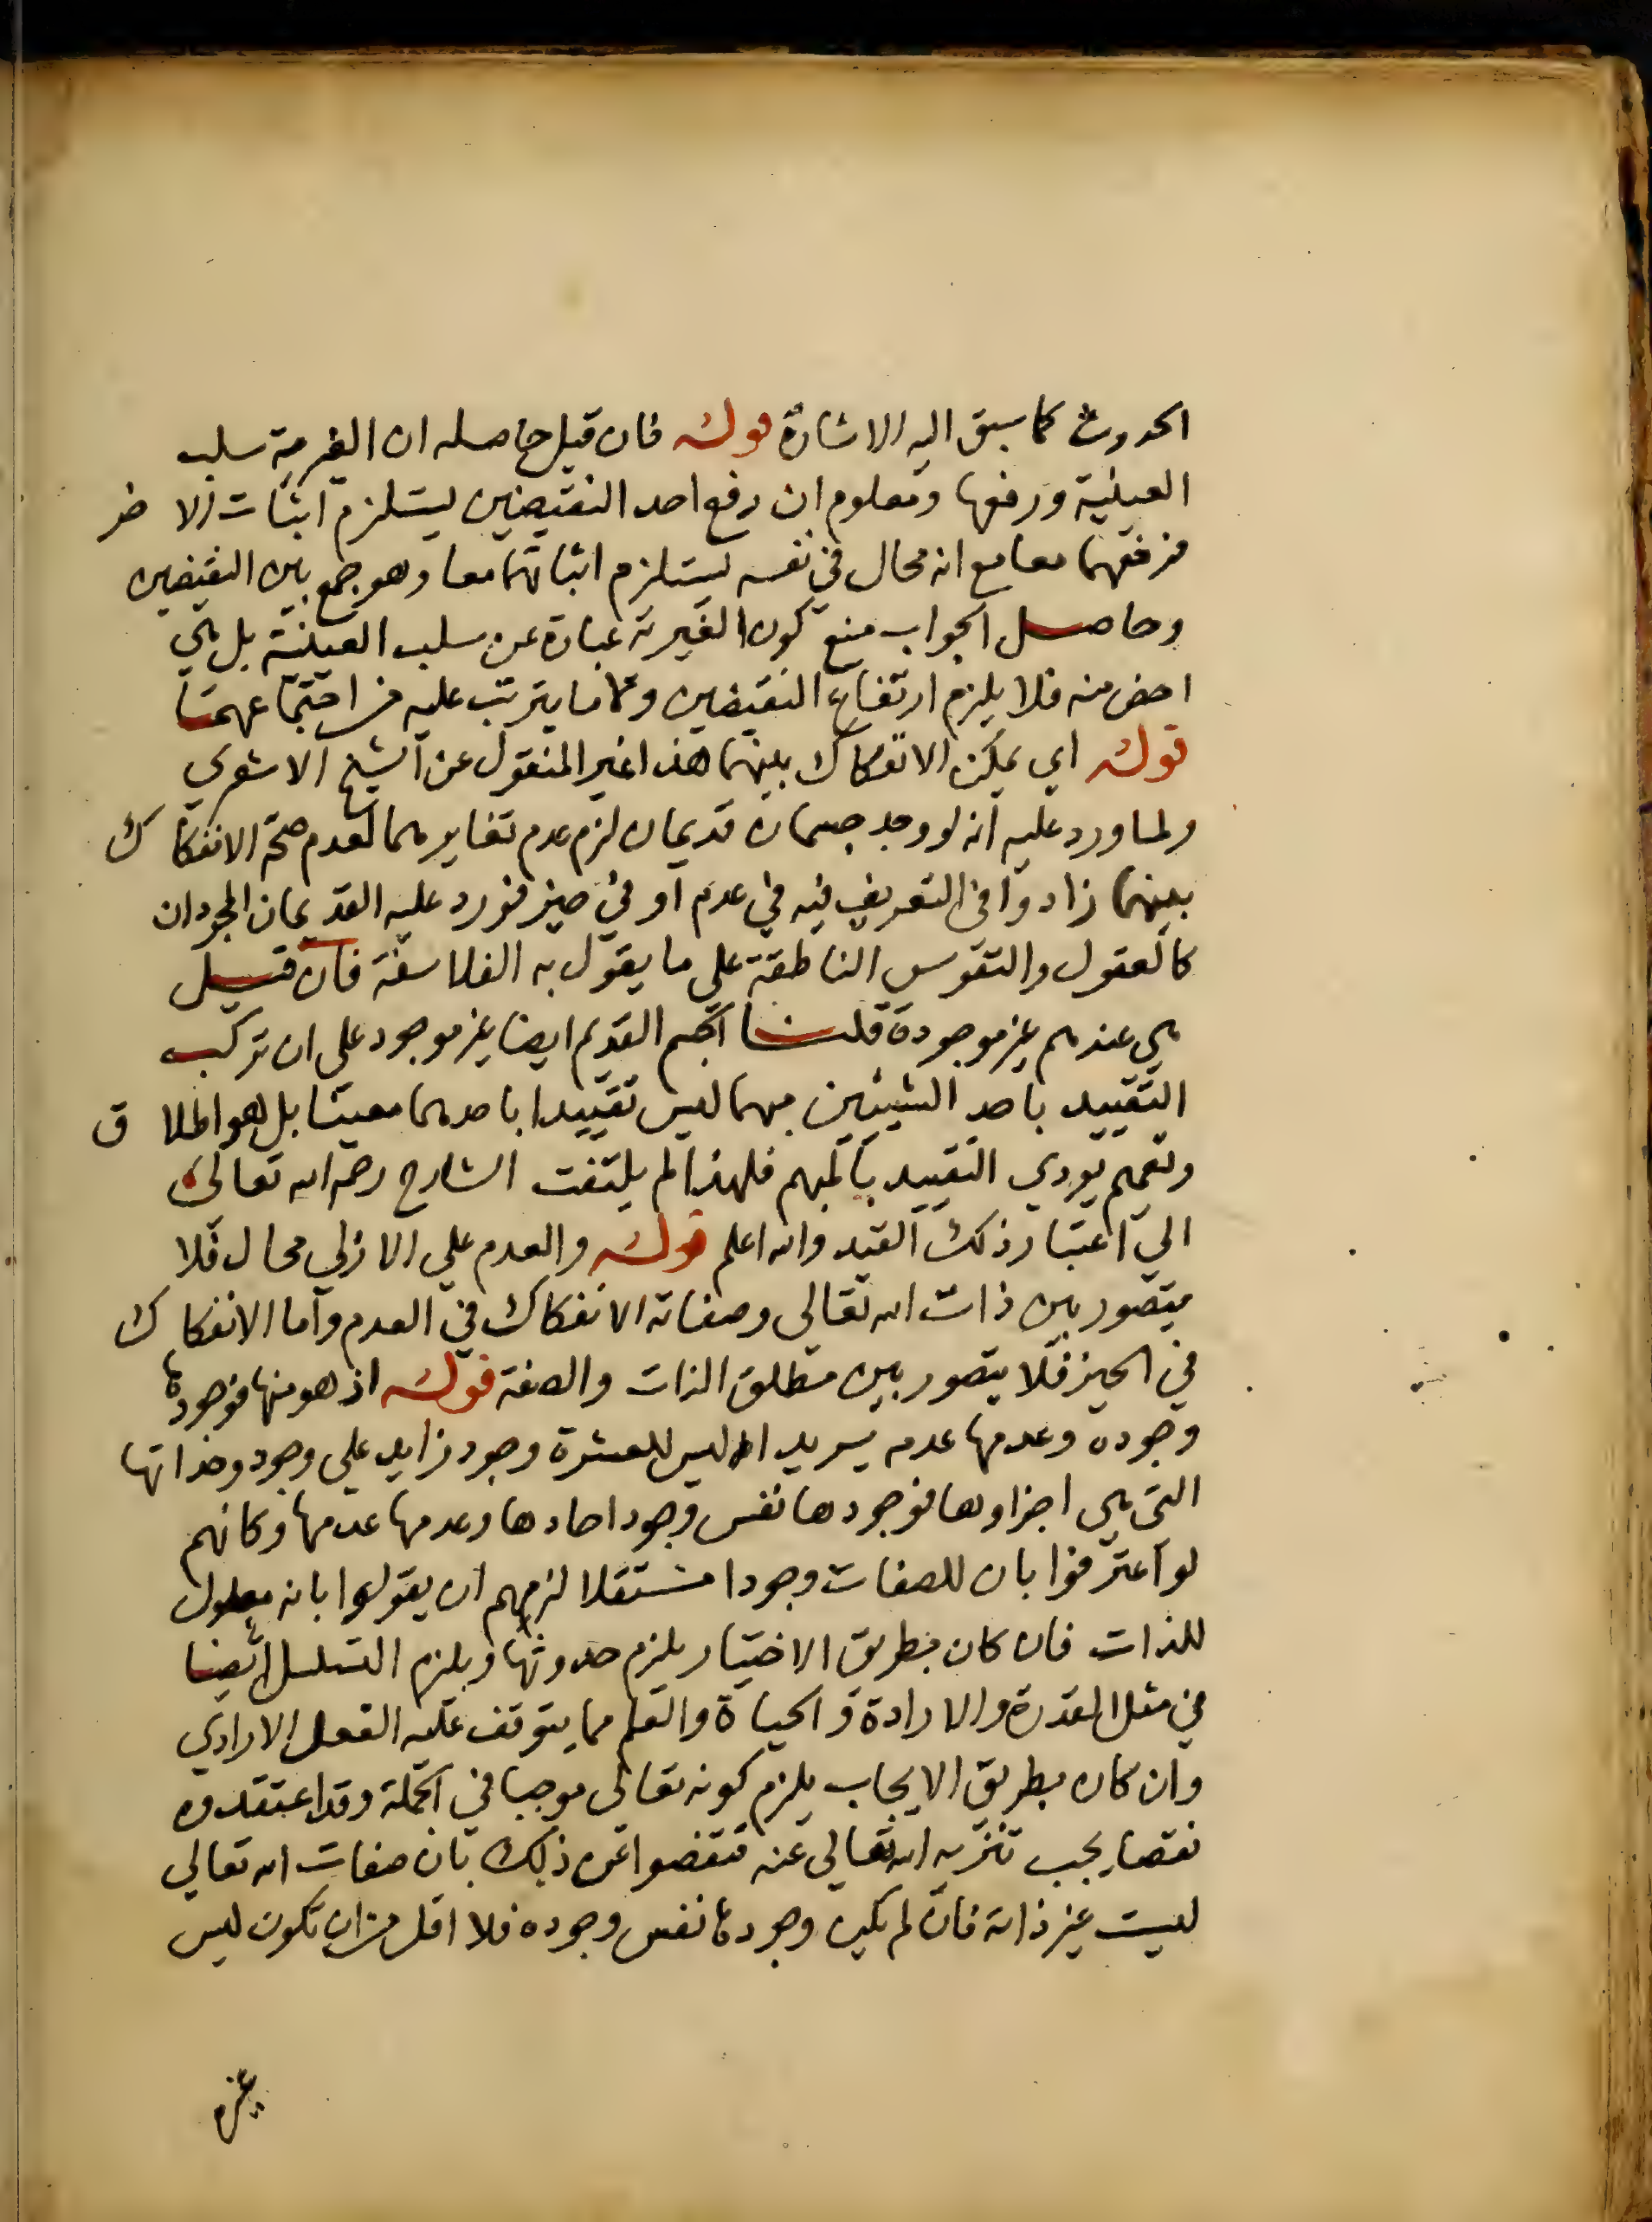 الحدوث كما سبق اليه الاشارة قوله فان قيل حاصله ان الغيرية سلب
العينية ورفعها ومعلوم ان رفع احد النقيضين يستلزم اثبات الاخر
فرفعهما معا مع انه محال في نفسه يستلزم اثباتهما معا وهو جمع بين النقيضين
وحاصل الجواب منع كون الغيرية عبارة عن سلب العينية بل هي
اخص منه فلا يلزم ارتفاع النقيضين ولا ما يترتب عليه من اجتماعهما
قوله اي يمكن الانفكاك بينهما هذا غير المنقول عن الشيخ الاشعري
ولما ورد عليه انه لو وجد جسمان قديمان لزم عدم تغايرهما لعدم صحة الانفكاك
بينهما زادوا في التعريف فيه في عدم او في حيز فورد عليه القديمان المجردان
كالعقول والنفوس الناطقة على ما يقول به الفلاسفة فان قيل
هي عندهم غير موجودة قلنا الجسم القديم ايضا غير موجود على ان تركب
التقييد باحد الشيئين مبهما ليس تقييدا باحدهما معينا بل هو اطلاق
وتعميم يودي التقييد بالمبهم فلهذا لم يلتفت الشارح رحمه الله تعالى
الي اعتبار ذلك القيد والله اعلم قوله والعدم على الازلي محال فلا
يتصور بين ذات الله تعالى وصفاته الانفكاك في العدم واما الانفكاك
في الحيز فلا يتصور بين مطلق الذات والصفة قوله اذ هو منها فوجودها
وجوده وعدمها عدمه يريد انه ليس للعشرة وجود زايد على وجود وحداتها
التي هي اجزاوها فوجودها نفس وجود احادها وعدمها عدمها وكانهم
لو اعترفوا بان للصفات وجودا مستقلا لزمهم ان يقولوا بانه معلول
للذات فان كان بطريق الاختيار يلزم حدوثها ويلزم التسلسل ايضا
في مثل القدرة والارادة والحياة والعلم مما يتوقف عليه الفعل الارادي
وان كان بطريق الايجاب يلزم كونه تعالى موجبا في الجملة وقد اعتقدوه
نقصا يجب تنزيه الله تعالى عنه فتفصوا عن ذلك بان صفات الله تعالي
ليست غير ذاته فان لم يكن وجودها نفس وجوده فلا اقل من ان تكون ليس
غيره